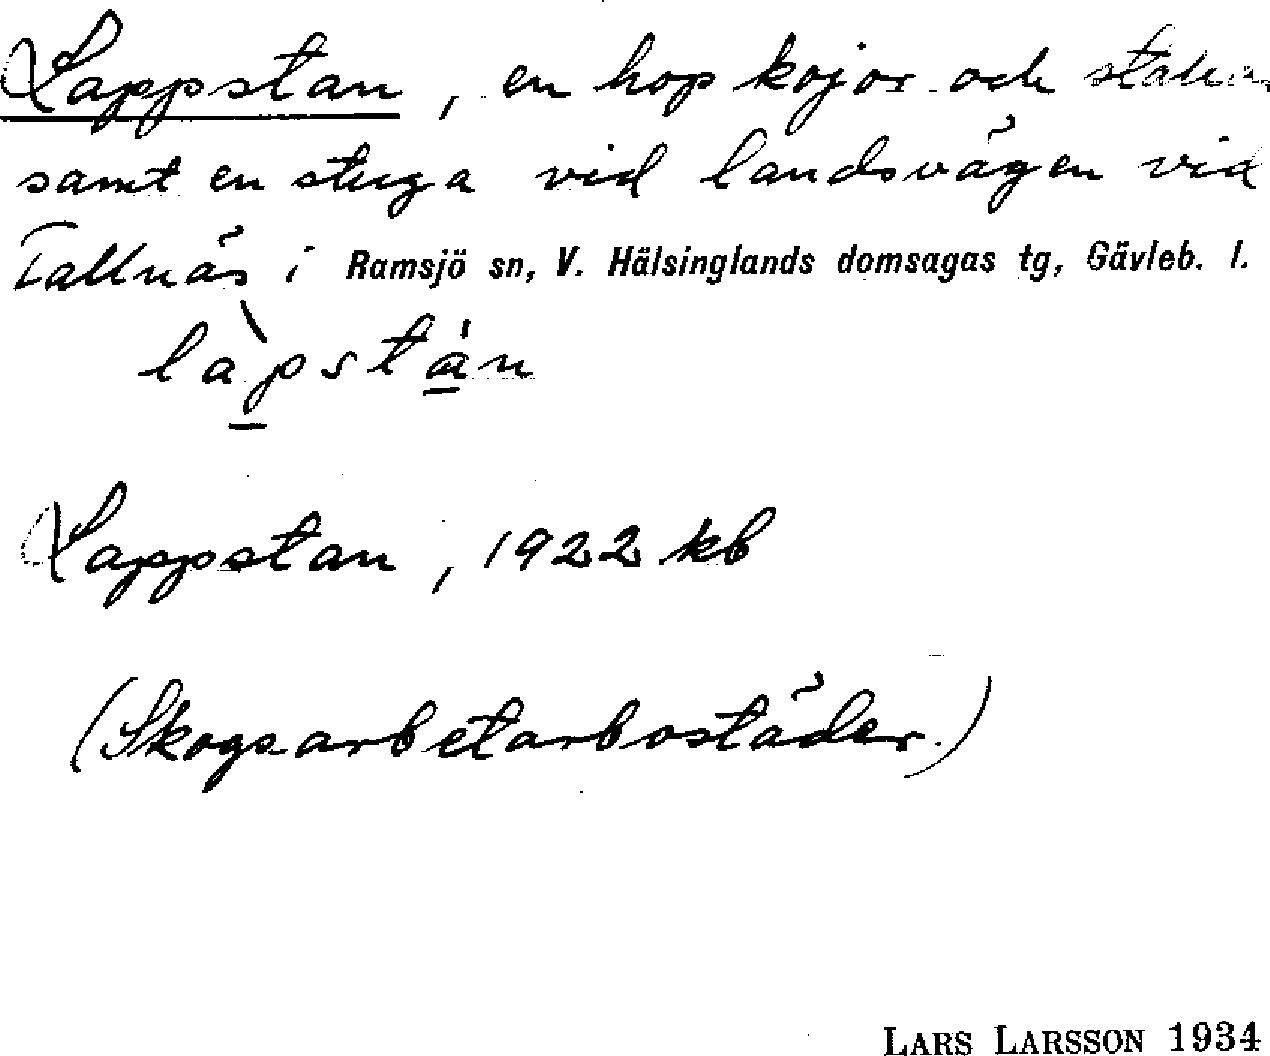 Lappstan, en hop kojor och
samt en stuga vid landsvägen vid
Tallnäs i Ramsjö sn, V. Hälsinglands domsagas tg, Gävleb. l.
làpstán
Lappstan, 1922 kb
(Skogsarbetarbostäder.)
LARS LARSSON 1934